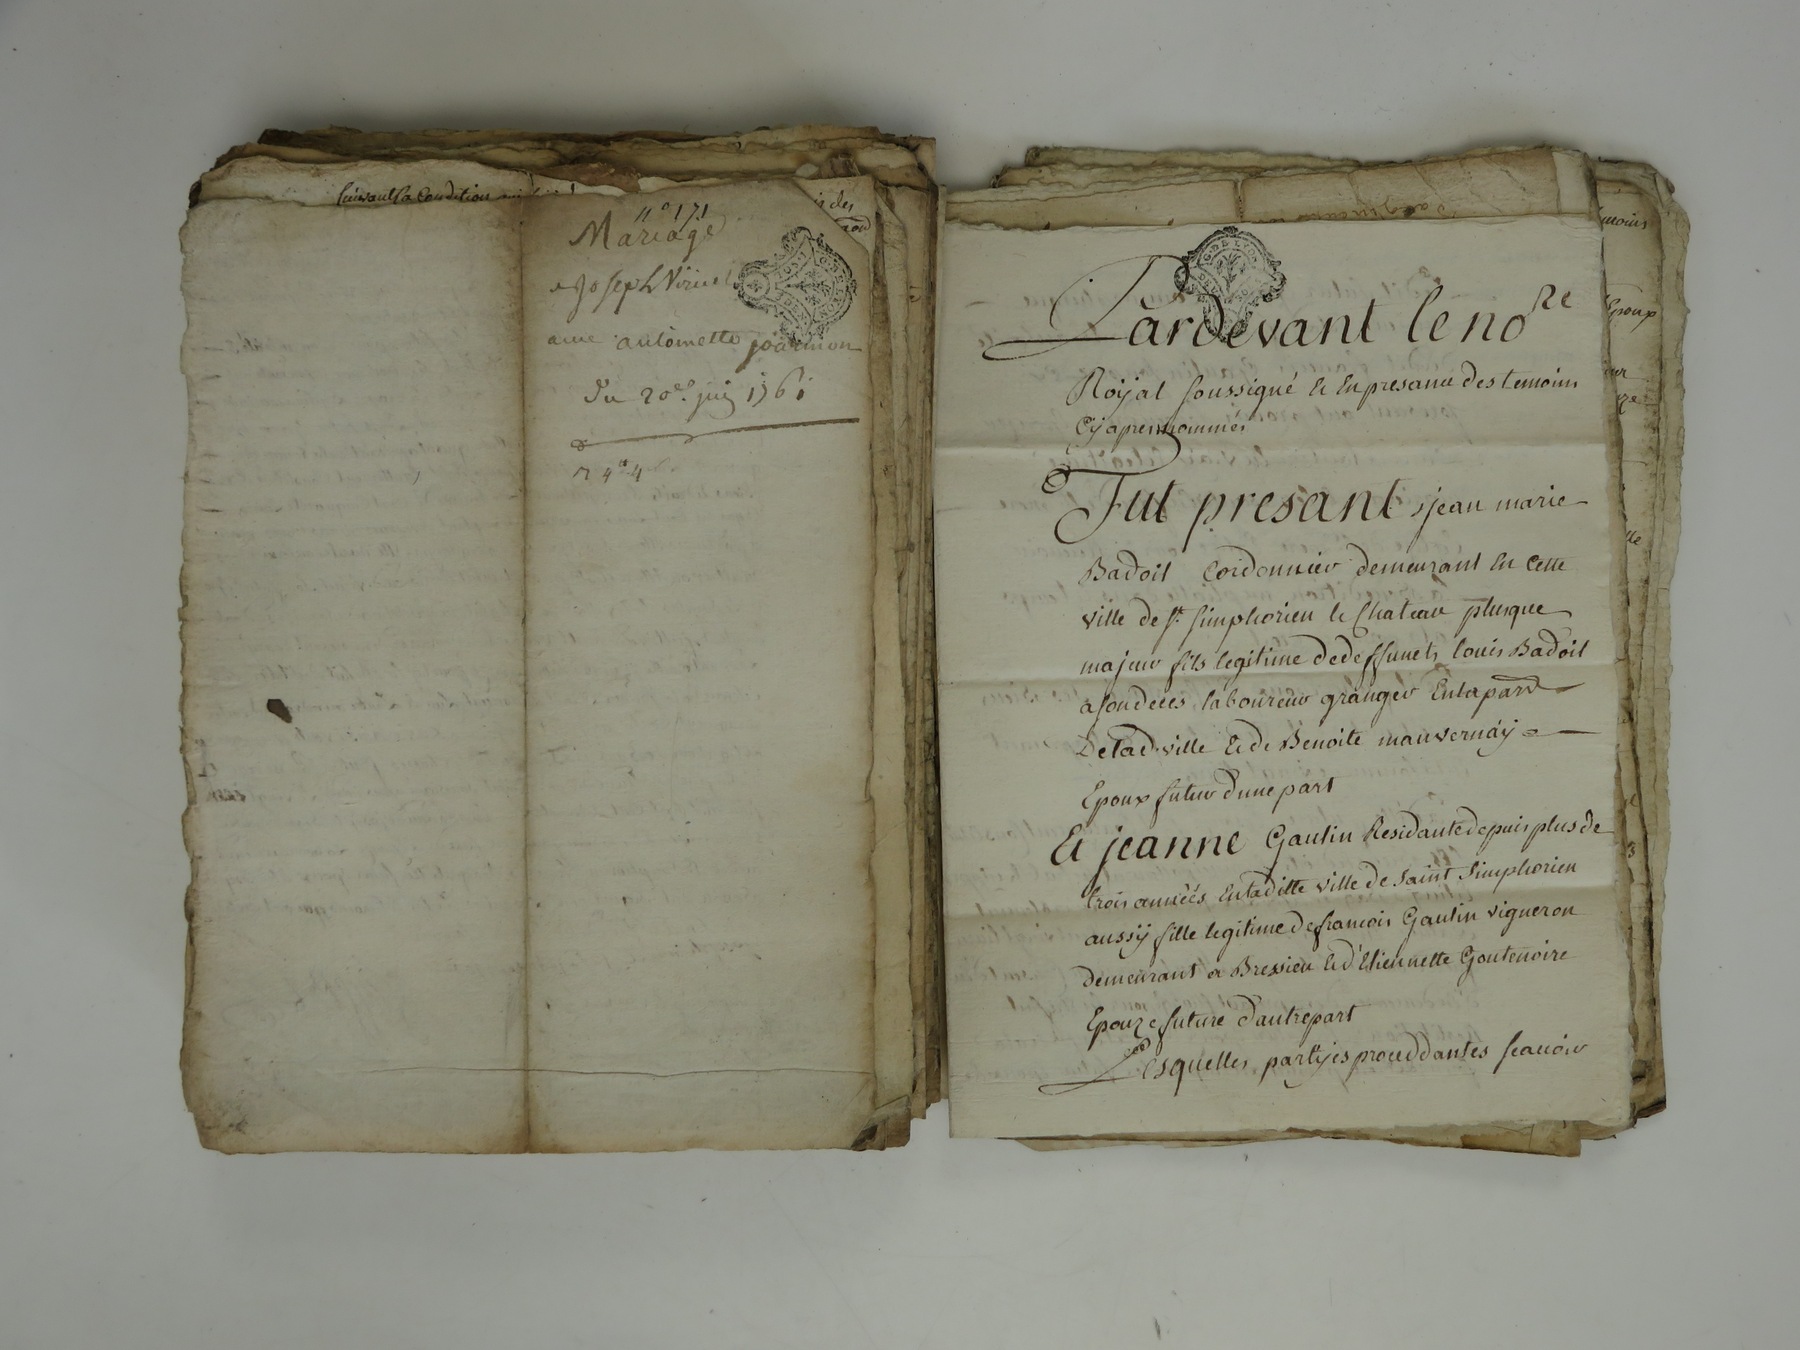 suivant la Condition
n° 171
Mariage
joseph
avec antoinette
Du 20e juin 1761
Pardevant le no.re
Roijal soussigné et En presance des temoins
Cy apres nommés
Fut presant sr jean marie
Badoil Cordonnier demeurant En Cette
ville de st. simphorien le Chateau plusque
majeur fils legitime de deffunct louis Badoil
a son deces laboureur granger En la parr
De lad. ville et de Benoite mauvernaÿ
Epoux futur d'une part
Et jeanne Gautin Residante depuis plus de
trois anneés En laditte ville de saint simphorien
aussÿ fille legitime de francois Gautin vigneron
demeurant a Bressieu et d'Etiennette Goutenoire
Epouze future d'autre part
Lesquelles partÿes proceddantes scavoir